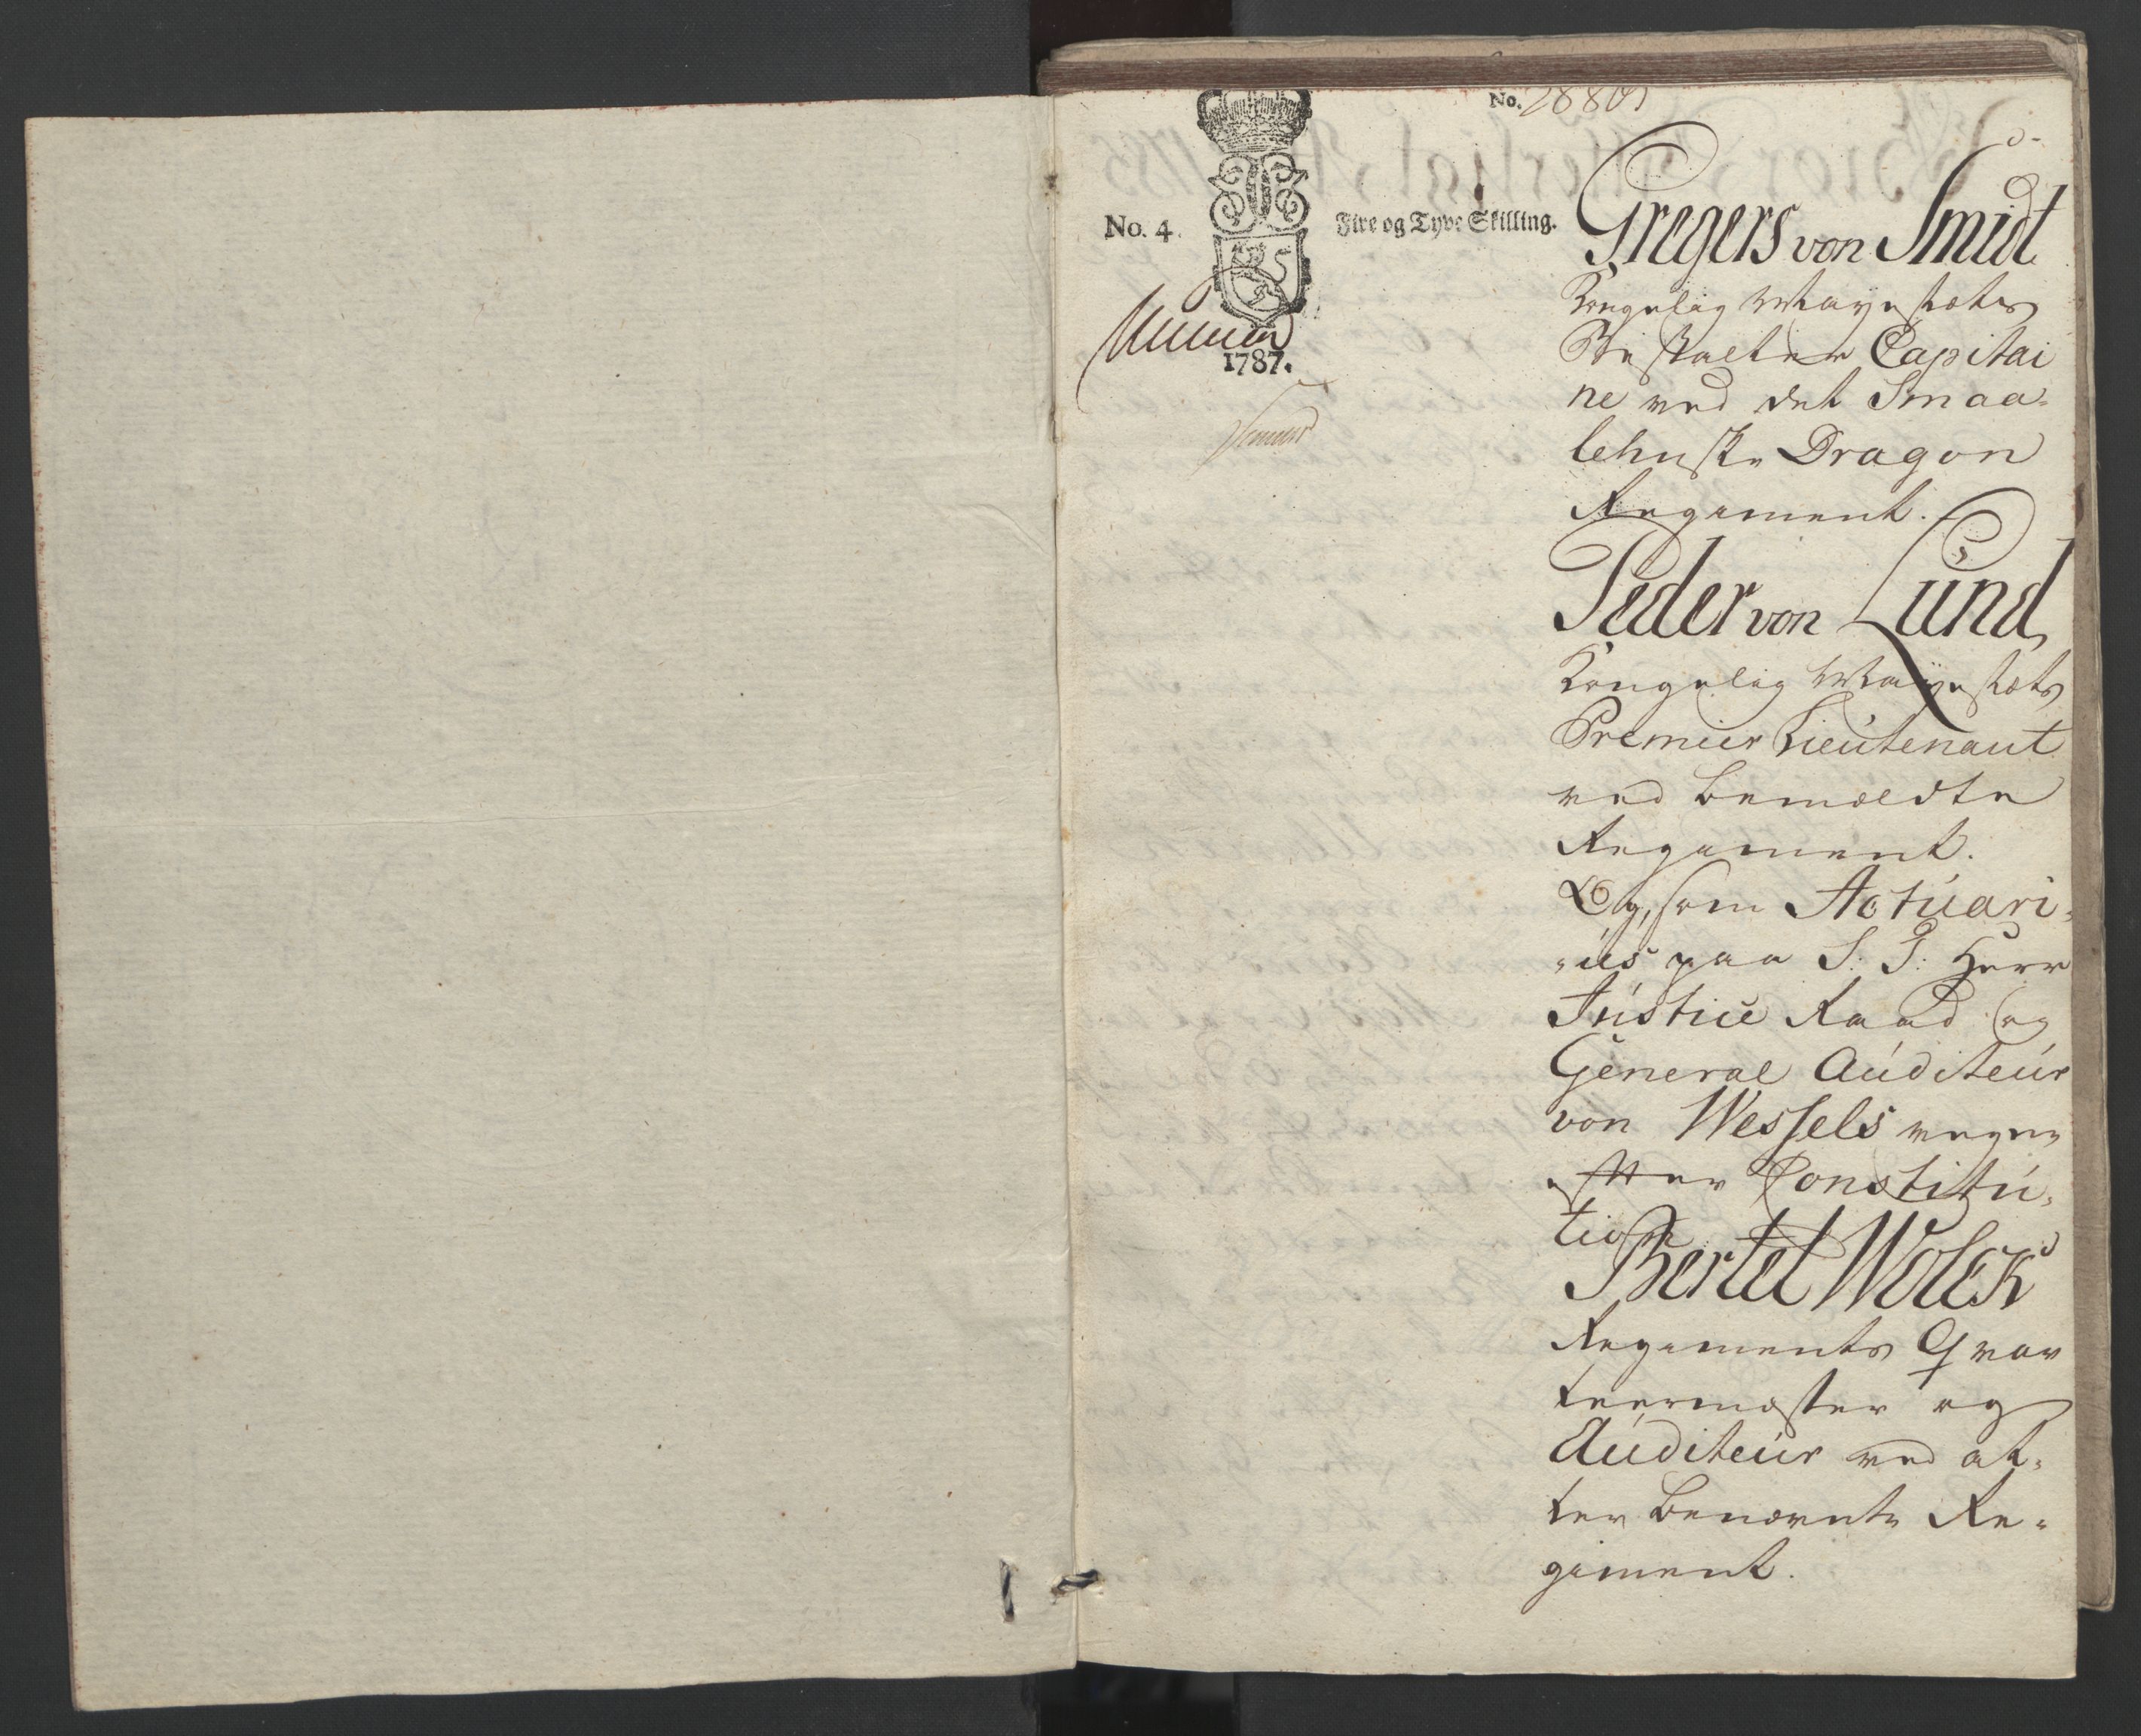 No. 2880
No. 4.
Fire og Tyve Skilling.
1787.
Gregers von Smidt
Kongelig Mayestæts
Bestalter Capitai
ne ved det Smaa-
lehnske Dragon
Regiment.
Peder von Lund,
Kongelig Mayestæts
Premier Lieutenant
ved bemældte
Regiment.
Og, som Actuari-
-us paa S. T. Herr
Justice Raad og
General Auditeur
von Wessels vegne
efter Constitu-
tion
Bertel Wolck
Regiments Qvar
teermester og
Auditeur ved at-
ter benævnte Re-
giment.